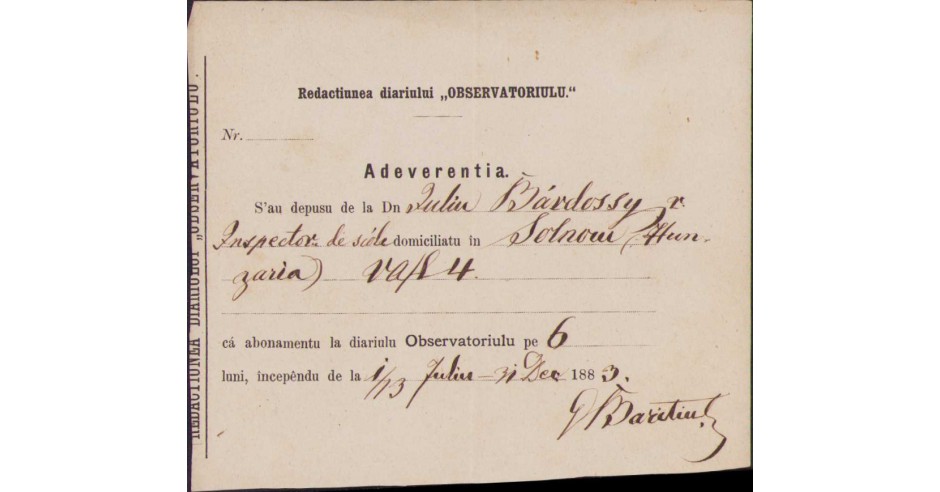 Redactiunea diariului „OBSERVATORIULU.“
Nr.
Adeverentia.
S'au depusu de la Dn Juliu Bárdossy r.
Inspector de scóle domiciliatu în Solnocu (Hun-
garia) 4.
cá abonamentu la diariulu Observatoriulu pe 6
luni, începêndu de la 1/13 Juliu – 31 Dec 1883.
G Baritiu
REDACTIUNEA DIARIULUI „OBSERVATORIULU.